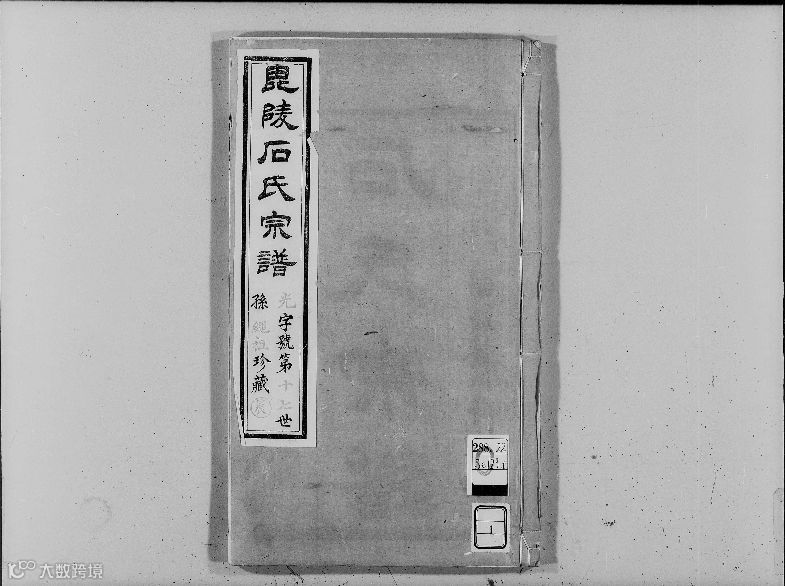 毘陵石氏宗譜
光字號第十七世
孫繩祖珍藏
288.72
大数跨境